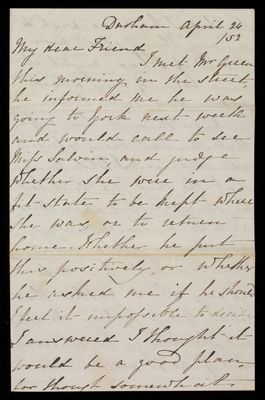 Durham April 24
/52
My dear Friend
I met Mr Green
this morning in the street,
he informed me he was
going to York next week
and would call to see
Miss Salvin, and judge
whether she were in a
fit state to be kept where
she was or to return
home. Whether he put
this positively, or whether
he asked me if he should
I feel it impossible to decide
I answered I thought it
would be a good plan,
for though somewhat